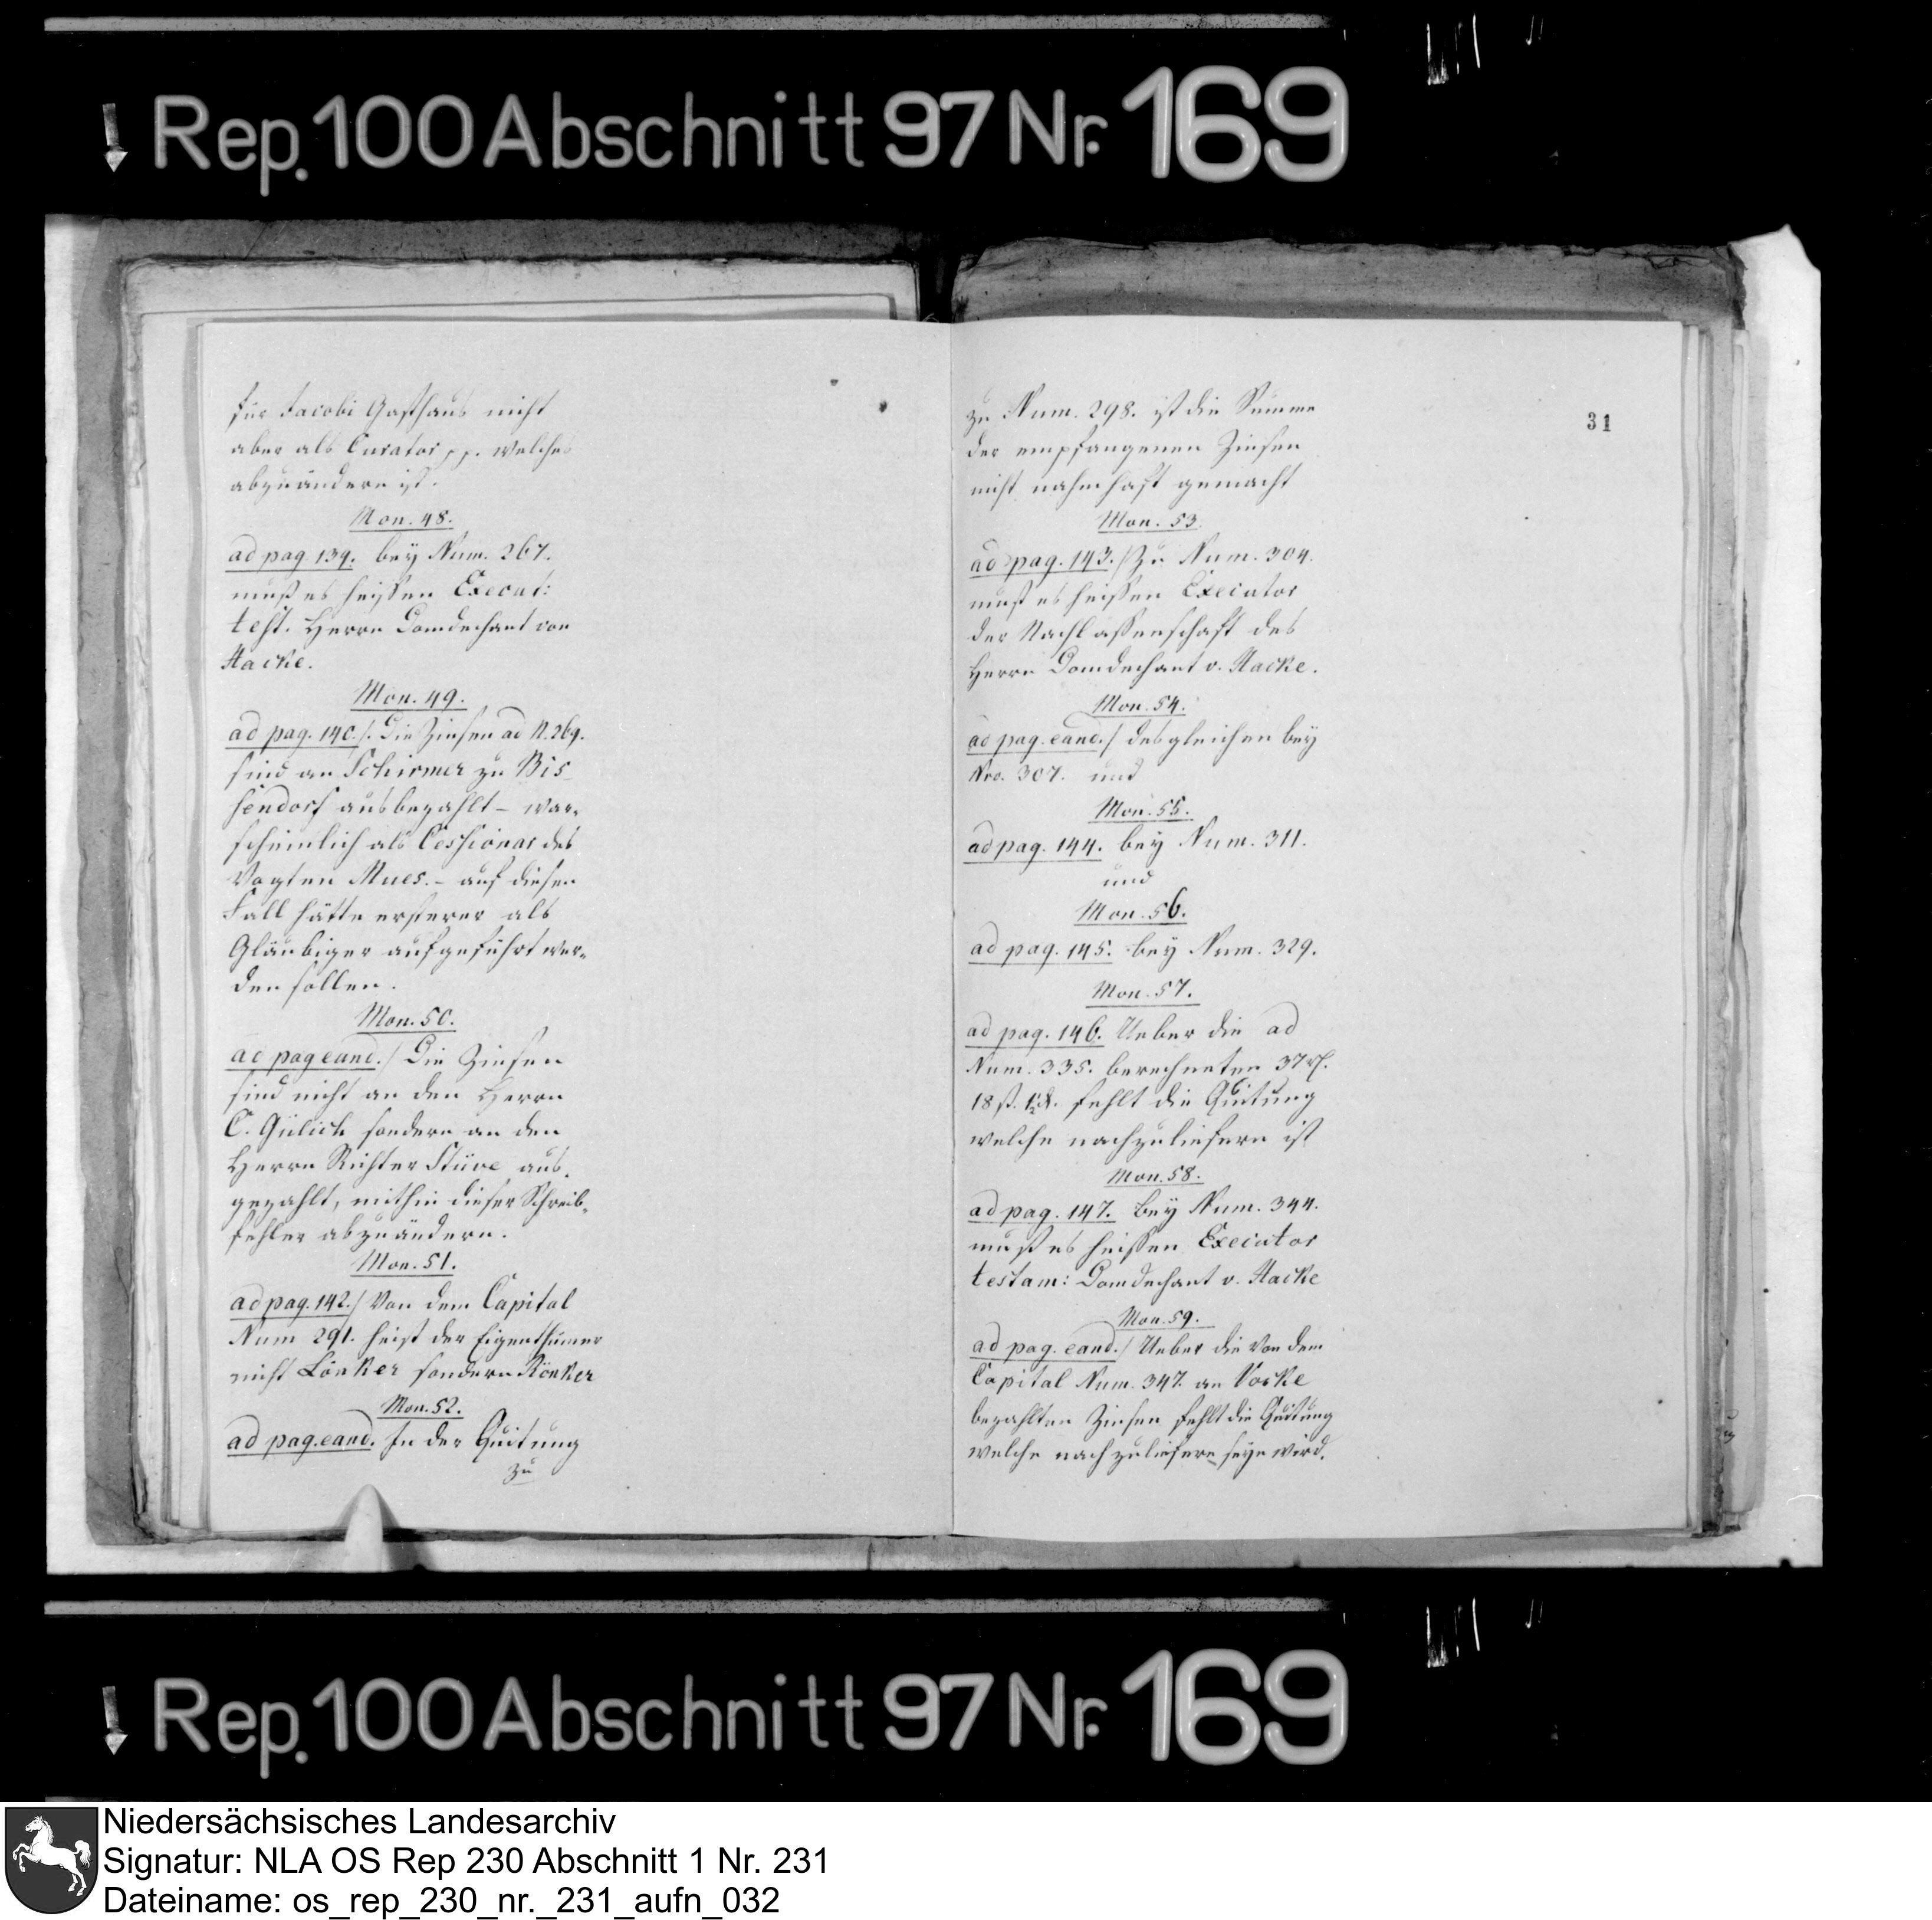 Rep. 100 Abschnitt 97 Nr. 169
für Jacobi Gasthaus nicht
aber als Curator pp. welches
abzuändern ist.
Mon. 48.
ad pag 139. bey Num. 267.
muß es heissen Execut:
test. Herrn Domdechant von
Hacke.
Mon. 49.
ad pag. 140./. Die Zinsen ad N. 269.
sind an Schirmer zu Bis
sendorf ausbezahlt - war-
scheinlich als Cessionar des
Vogten Mues. - auf diesen
Fall hätte ersterer als
Gläubiger aufgeführt wer-
den sollen.
Mon. 50.
ad pag eand./ Die Zinsen
sind nicht an den Herrn
C. Gülich sondern an den
Herrn Richter Stüve aus-
gezahlt, mithin dieser Schreib-
fehler abzuändern.
Mon. 51.
ad pag. 142./ Von dem Capital
Num 291. heist der Eigenthümer
nicht Lönker sondern Rönker
Mon. 52.
ad pag. eand. In der Quitung
zu
31
zu Num. 298. ist die Summe
der empfangenen Zinsen
nicht nahmhaft gemacht
Mon. 53.
ad pag. 143./ Zu Num. 304.
muß es heissen Executor
der Nachlassenschaft des
Herrn Domdechant v. Hacke.
Mon. 54.
ad pag. eand./ desgleichen bey
Nro. 307. und
Mon. 55.
ad pag. 144. bey Num. 311.
und
Mon. 56.
ad pag. 145. bey Num. 329.
Mon. 57.
ad pag. 146. Ueber die ad
Num. 335. berechneten 37 rl.
18 ß. fehlt die Quitung
welche nachzuliefern ist
Mon. 58.
ad pag. 147. bey Num. 344.
muß es heissen Executor
testam: Domdechant v. Hacke
Mon. 59.
ad pag. eand./ Ueber die von dem
Capital Num. 347. an Vorke
bezahlten Zinsen fehlt die Quitung
welche nachzuliefern seyn wird.
Rep. 100 Abschnitt 97 Nr. 169
Niedersächsisches Landesarchiv
Signatur: NLA OS Rep 230 Abschnitt 1 Nr. 231
Dateiname: os_rep_230_nr._231_aufn_032